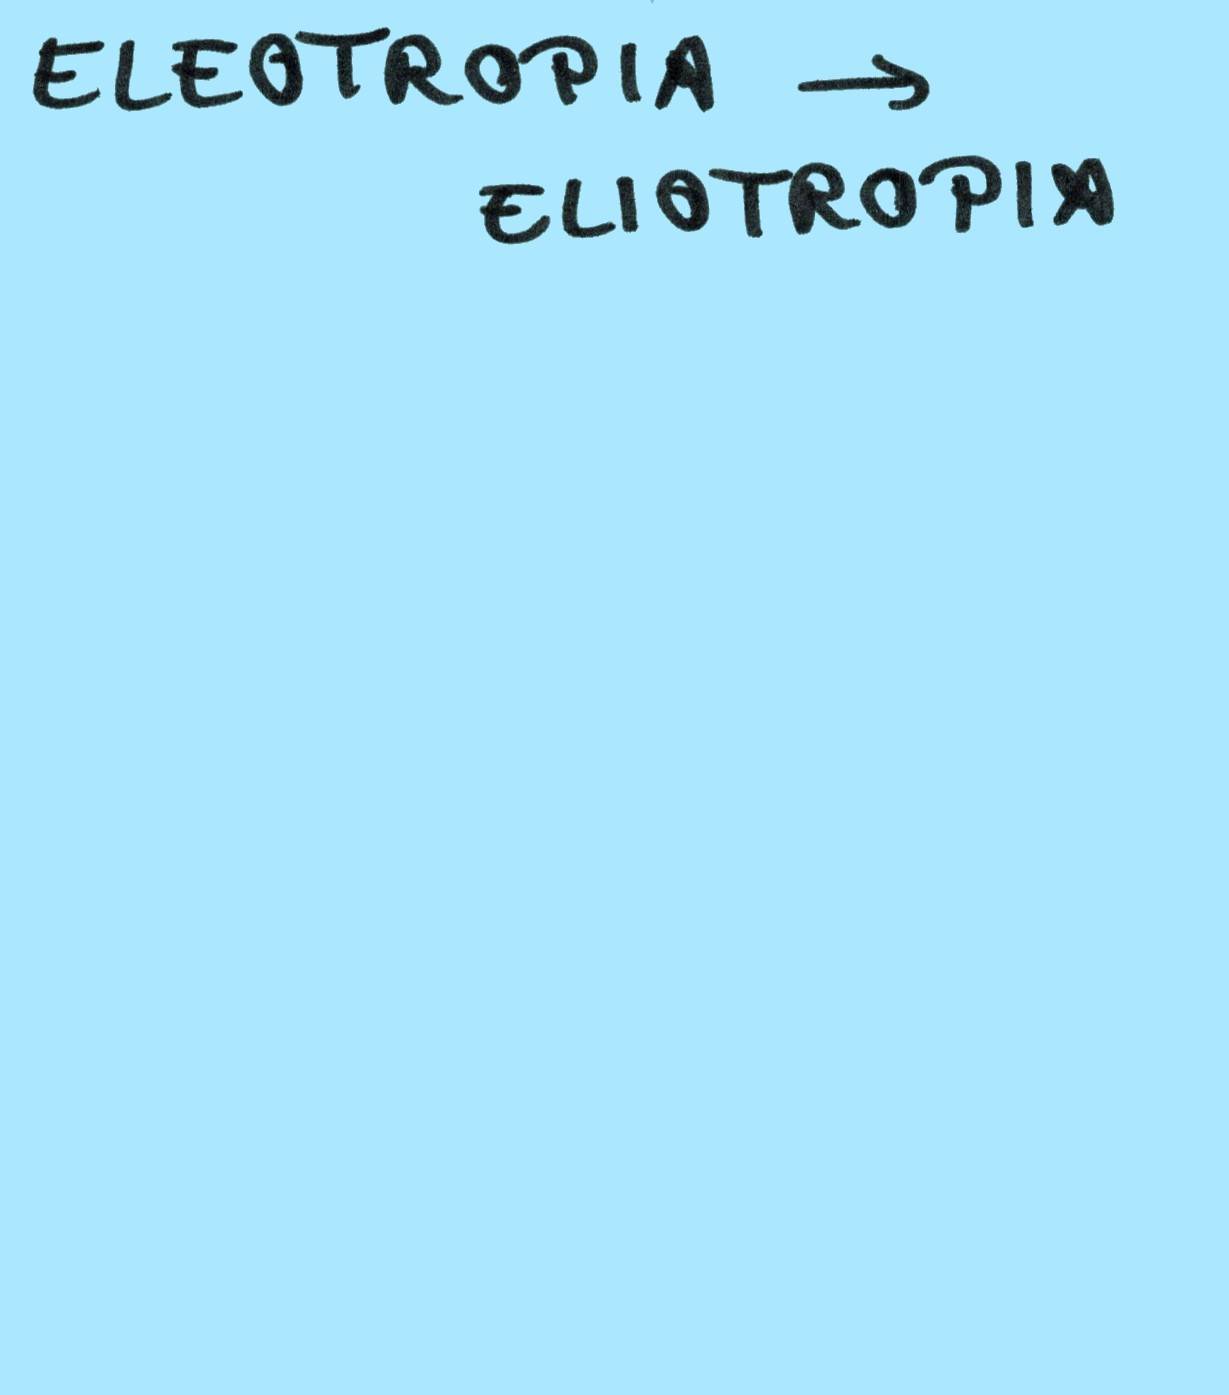 ELEOTROPIA →
ELIOTROPIA